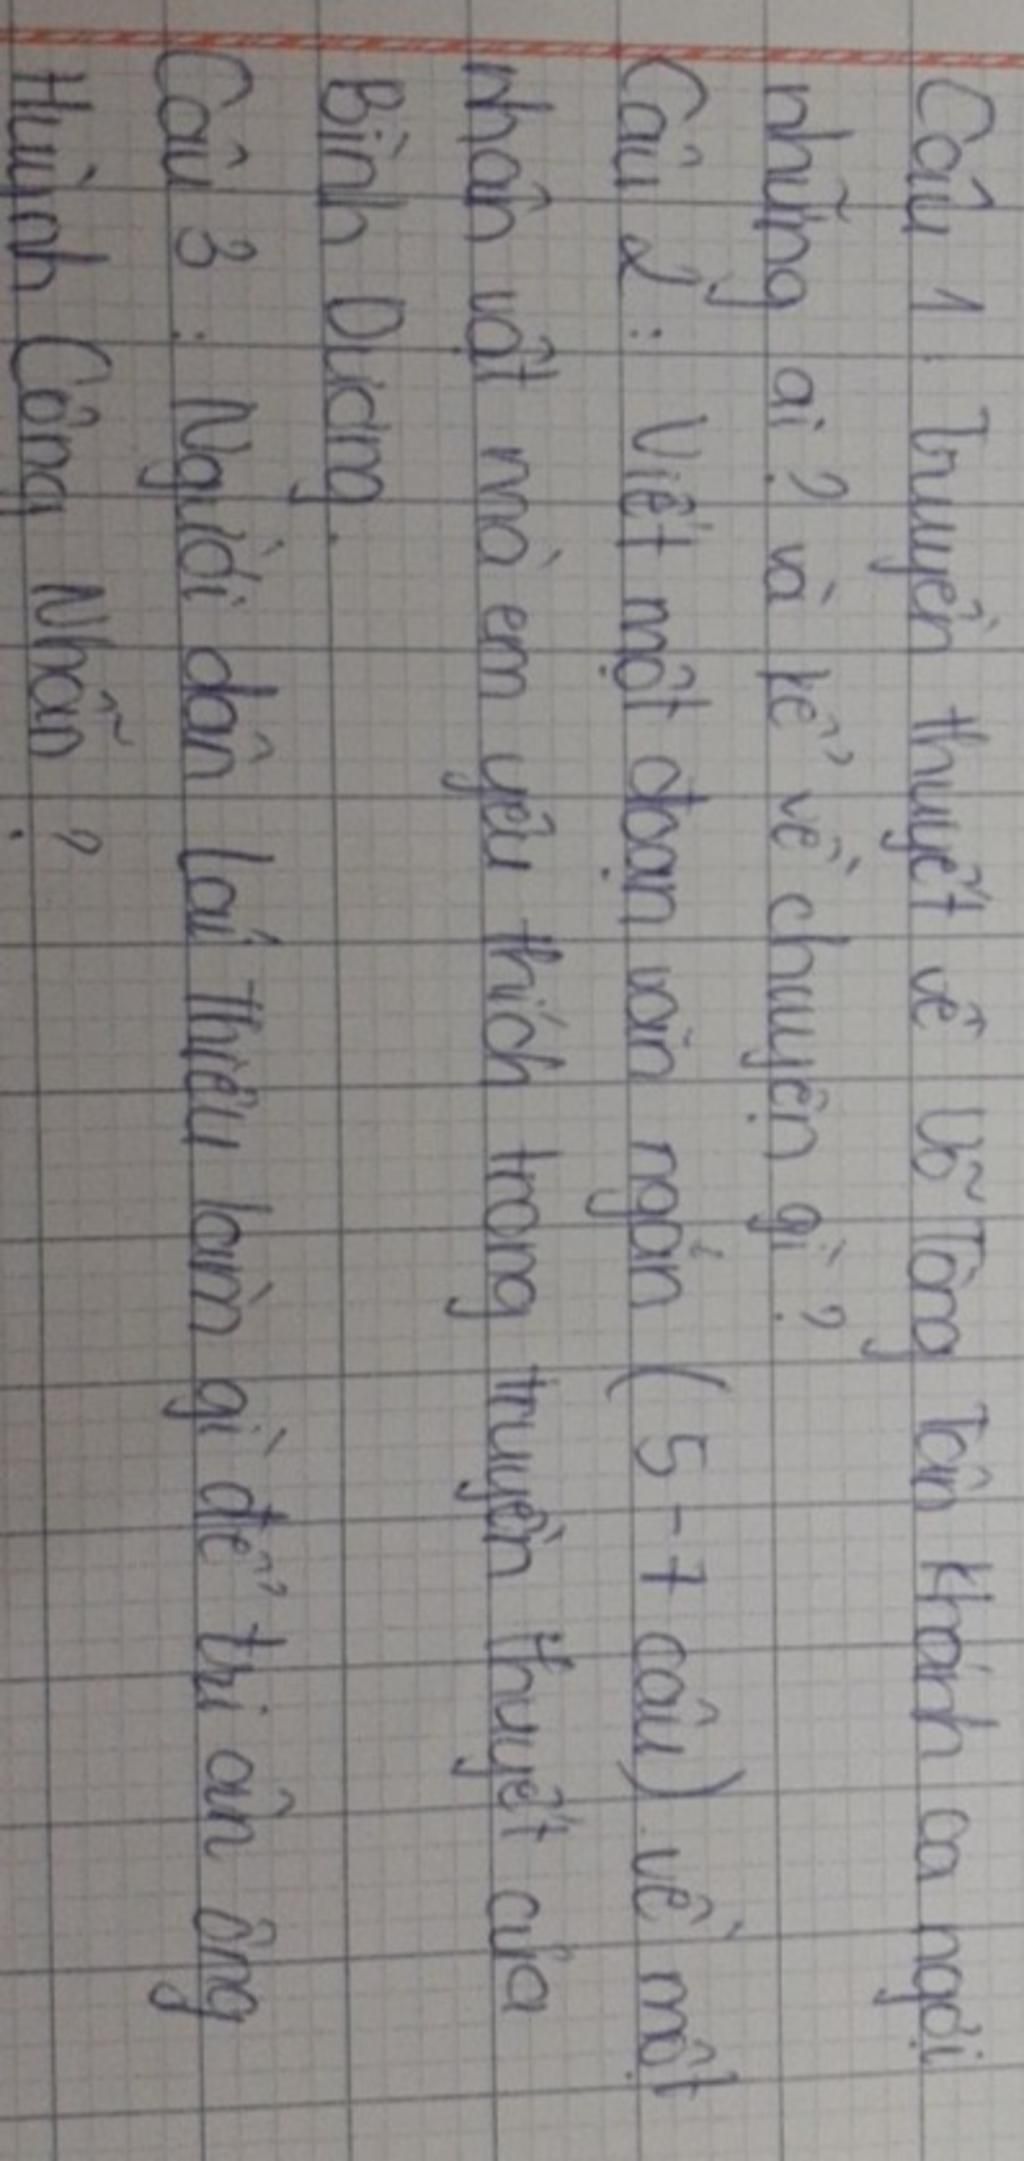 Câu 1: Truyền thuyết về Võ Tòng Tân Khánh ca ngợi
những ai? và kể về chuyện gì?
Câu 2: Viết một đoạn văn ngắn (5-7 câu) về một
nhân vật mà em yêu thích trong truyền thuyết của
Bình Dương.
Câu 3: Người dân Lái Thiêu làm gì để tri ân ông
Huỳnh Công Nhẫn?